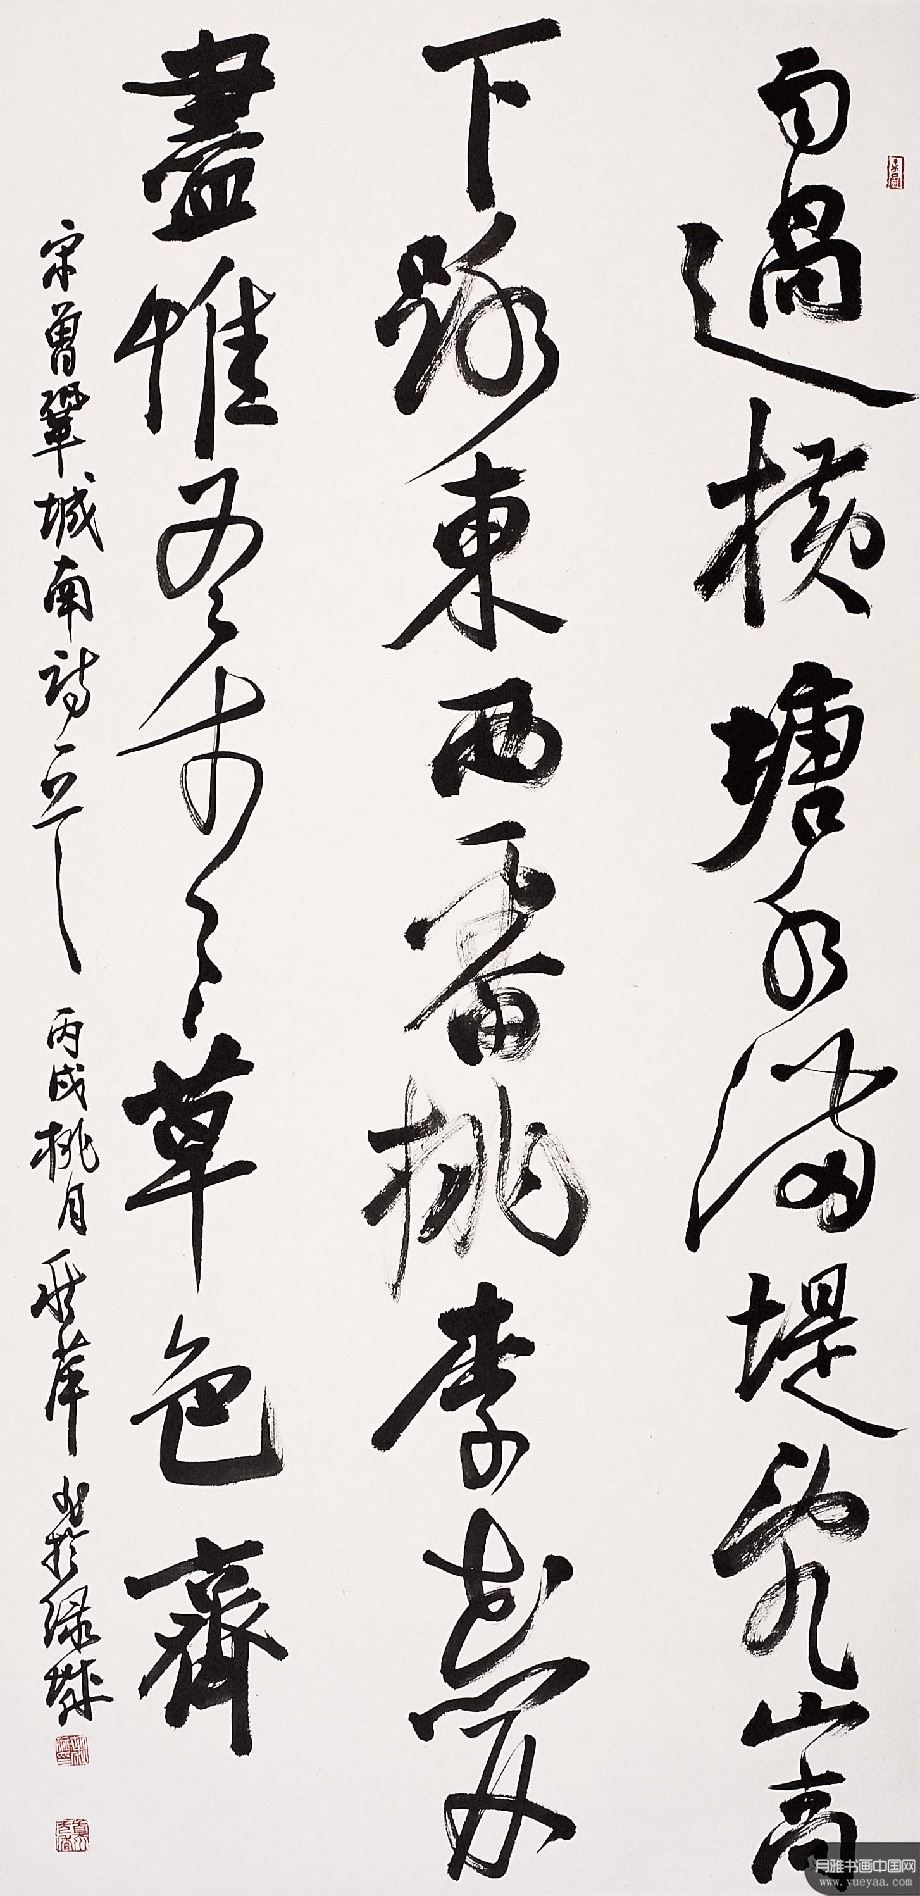 雨過橫塘水滿堤亂山高
下路東西一番桃李花開
盡惟有青々草色齊
宋曾鞏城南詩一首 丙戌桃月 書於綠城
月雅书画中国网
www.yueyaa.com